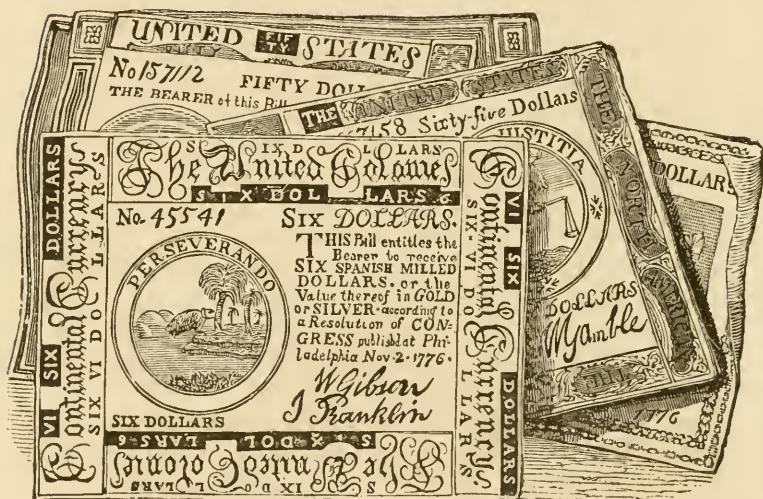 UNITED FIF TY STATES
No 157112 FIFTY DOL
THE BEARER of this Bill
THE UNITED STATES
7158 Sixty-five Dollars
JUSTITIA
THE
NORTH
AMERICAN
DOLLARS
WGamble
DOLLARS
1776
SIX DOLLARS
The United Colonies
SIX DOLLARS. 6
No. 45541 SIX DOLLARS.
PERSEVERANDO
THIS Bill entitles the
Bearer to receive
SIX SPANISH MILLED
DOLLARS, or the
Value thereof in GOLD
or SILVER according to
a Resolution of CON-
GRESS publish'd at Phi-
ladelphia Nov. 2. 1776.
W Gibson
J Franklin
SIX DOLLARS
VI SIX DOLLARS
Continental Currency
SIX VI DOLLARS
VI SIX DOLLARS
Continental Currency
SIX-VI DOLLARS
SIX DOLLARS 6
The United Colonies
SIX DOLLARS